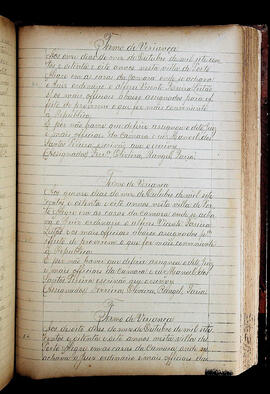 Termo de Veriança
Aos onze dias do mez de Outubro de mil sete cen
tos, e oitenta e oito annos nesta villa de Porto
Alegre em as casas da Camara onde se achava
o Juiz ordinario o alferes Vicente Ferreira Leitão
e os mais officiaes abaixo assignados para ef
feito de proverem o que for mais conveniente
á Republica
E por não haver que deferir assignou o dito Juiz
e mais officiaes da Camara e eu Manoel dos
Santos escrivão que o escrevi
Assignados Oliveira, Rangel, Faria.
Termo de Veriança
Aos quinze dias do mez de Outubro de mil sete
centos e oitenta e oito annos nesta villa de Por
to Alegre em as casas da Camara onde se acha
va o Juiz ordinario o alferes Vicente Ferreira
Leitão e os mais officiaes abaixo assignados para
effeito de proverem o que for mais conveniente
á Republica
E por não haver que deferir assignou o dito Juiz
e mais officiaes da Camara e eu Manoel dos
Santos escrivão que o escrevi
Assignados Ferreira, Oliveira, Rangel, Faria.
Termo de Veriança
Aos dias do mez de Outubro de mil sete
centos e oitenta e oito annos nesta villa de
Porto Alegre em as casas da Camara onde se
achava o Juiz ordinario e mais officiaes da